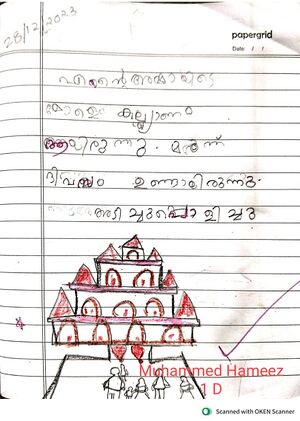 28/12/2023
papergrid
Date: / /
എന്റെ അമ്മായിടെ
മോളെ കല്ല്യാണം
ആയിരുന്നു. മൂന്ന്
ദിവസം ഉണ്ടായിരുന്നു.
അടിച്ചുപൊളിച്ചു
Muhammed Hameez
1 D
Scanned with OKEN Scanner